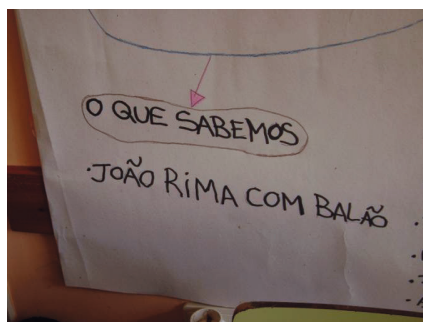 O QUE SABEMOS
·JOÃO RIMA COM BALÃO